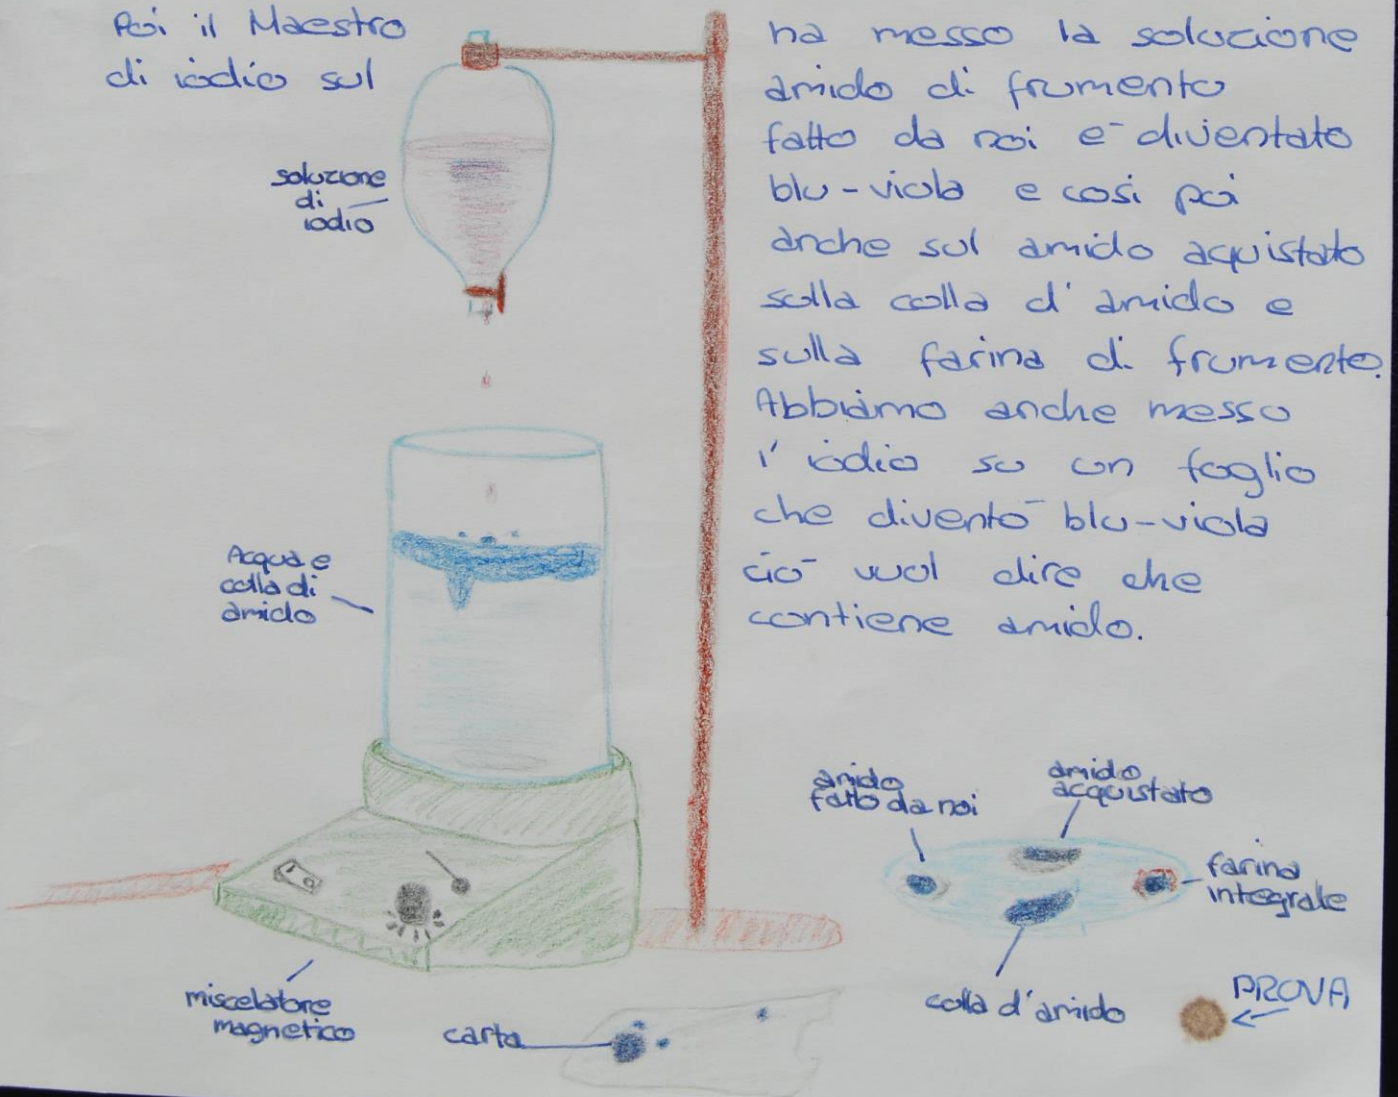 Poi il Maestro ha messo la soluzione
di iòdio sul amido di frumento
fatto da noi e¯ diventato
blu-viola e cosi poi
anche sul amido acquistato
sulla colla d'amido e
sulla farina di frumento.
Abbiamo anche messo
l'iòdio su un foglio
che divento¯ blu-viola
ciò vuol dire che
contiene amido.
soluzione
di
iodio
Acqua e
colla di
amido
miscelatore
magnetico
carta
amido
fatto da noi
amido
acquistato
farina
integrale
colla d'amido
PROVA